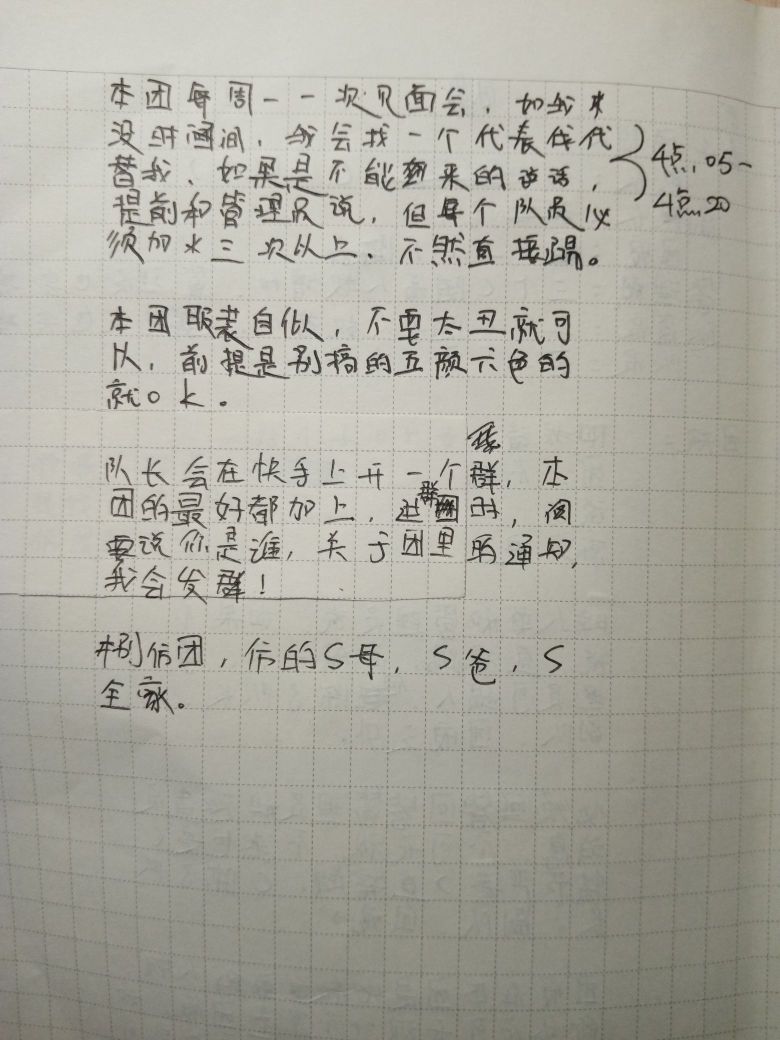 本团每周一一次见面会，如我来
没时间，我会找一个代表代
替我，如果是不能到来的话，
提前和管理员说，但每个队员必
须加水三次以上，不然直接踢。
4点.05-
4点.20
本团服装自似，不要太丑就可
以，前提是别搞的五颜六色的
就ok。
队长会在快手上开一个群，本
团的最好都加上，进群时，
要说你是谁，关于团里的通知，
我会发群！
别仿团，仿的S母，S爸，S
全家。